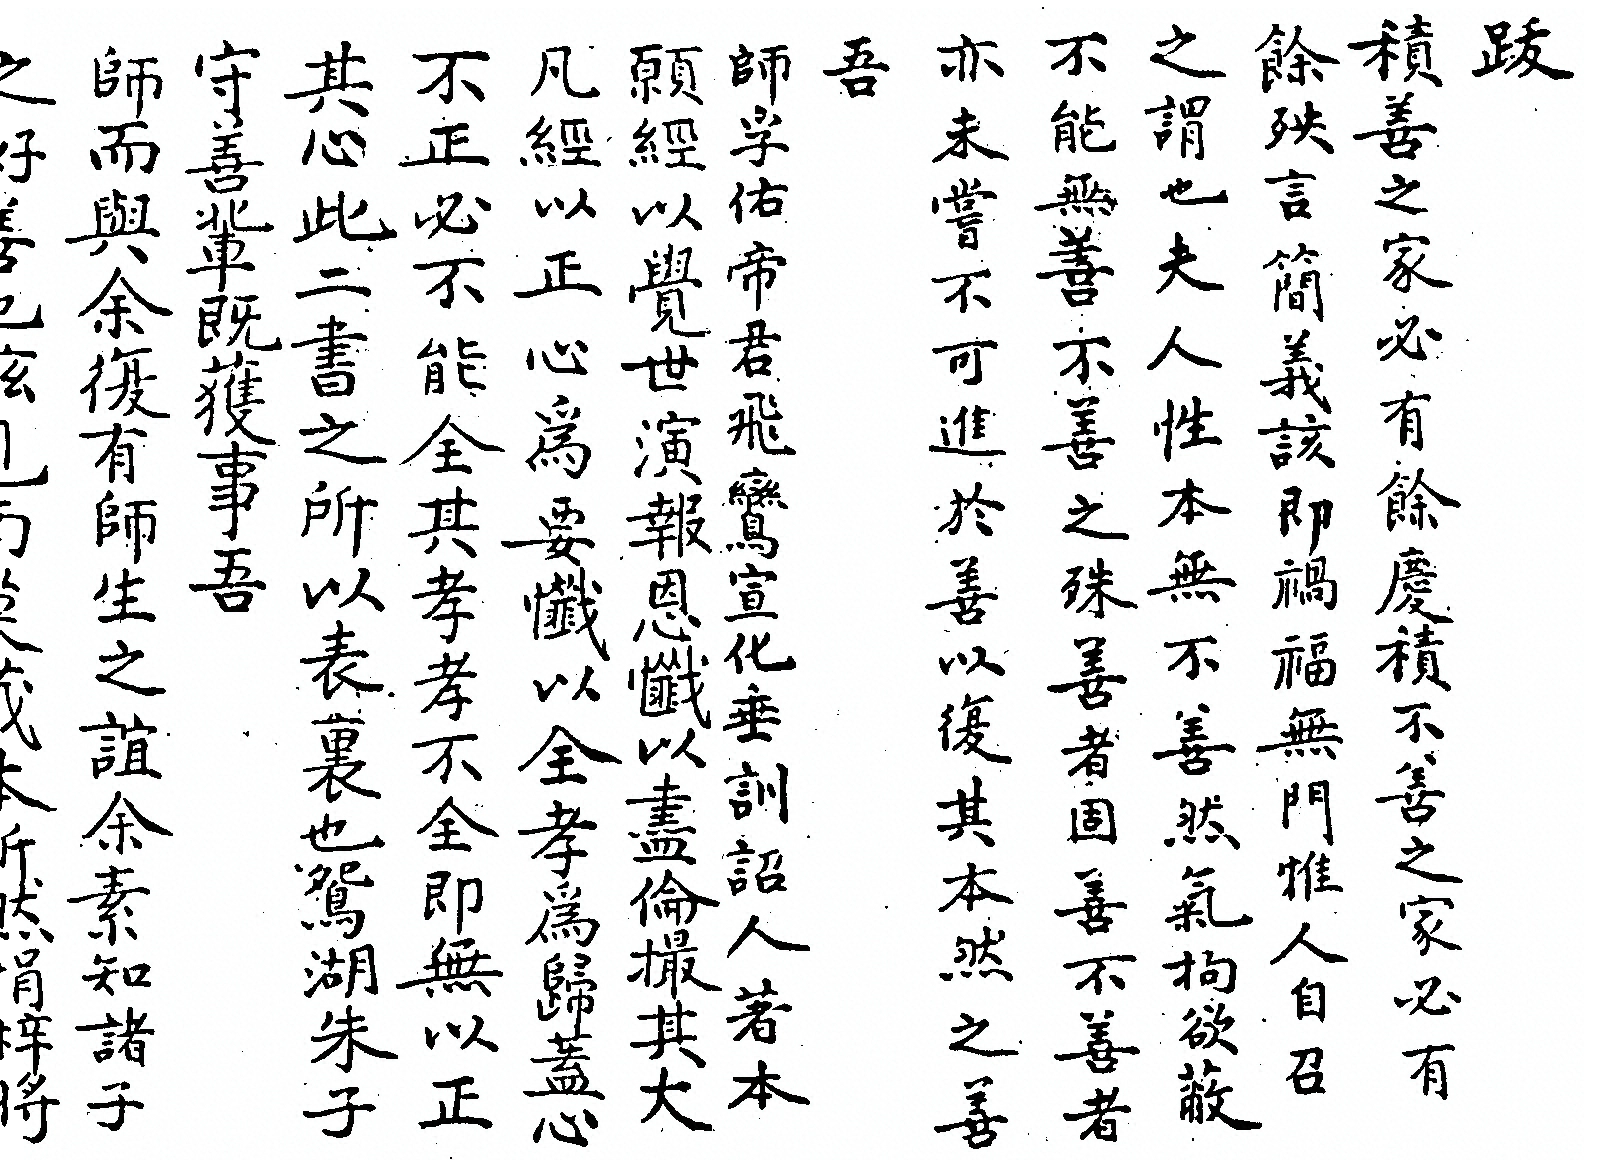 跋
積善之家必有餘慶積不善之家必有
餘殃言簡義該即禍福無門惟人自召
之謂也夫人性本無不善然氣拘欲蔽
不能無善不善之殊善者固善不善者
亦未嘗不可進於善以復其本然之善
吾
師孚佑帝君飛鸞宣化垂訓詔人著本
願經以覺世演報恩懺以盡倫撮其大
凡經以正心為要懺以全孝為歸蓋心
不正必不能全其孝孝不全即無以正
其心此二書之所以表裏也鴛湖朱子
守善輩既獲事吾
師而與余復有師生之誼余素知諸子
之好善也